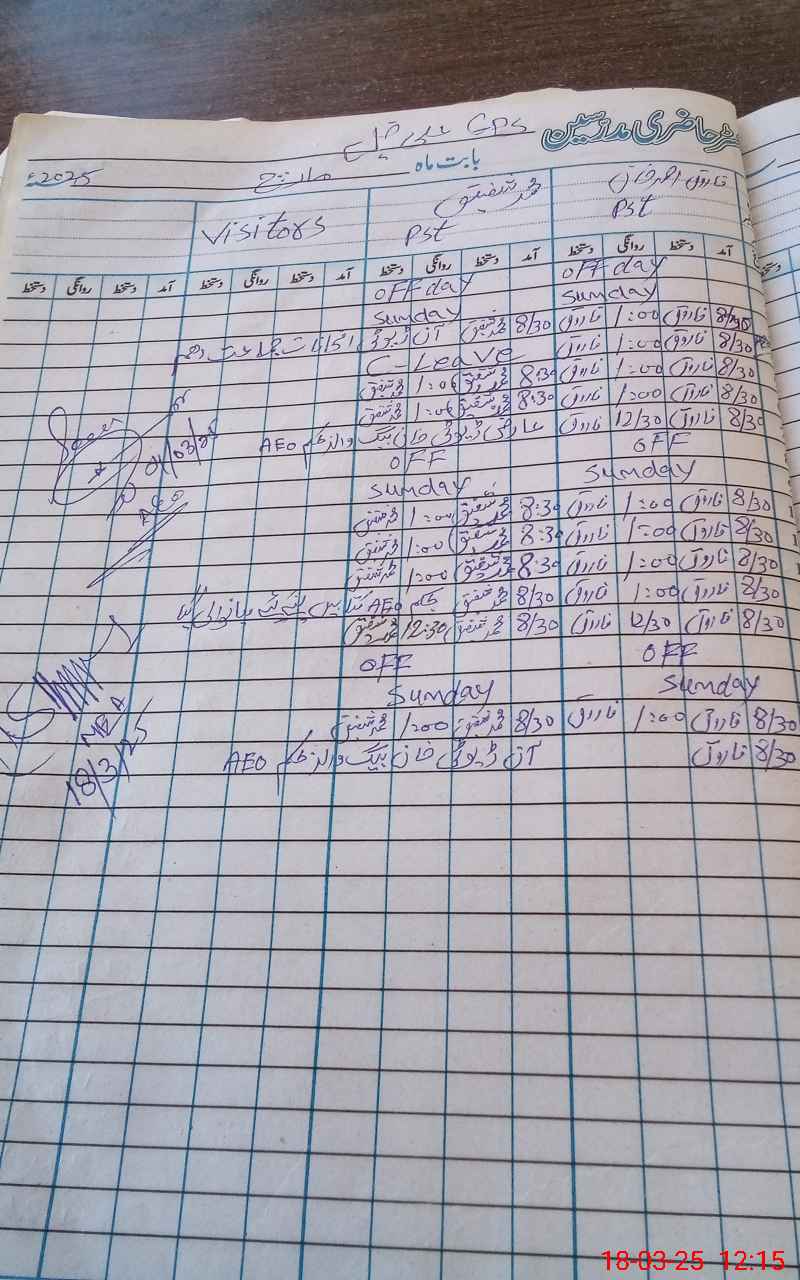 رجسٹر حاضری مدرسین
GPS
بابت ماہ مارچ 2025ء
محمد شفیق Visitors
PST PST
آمد دستخط روانگی دستخط آمد دستخط روانگی دستخط آمد دستخط روانگی دستخط آمد دستخط روانگی دستخط
OFF day OFF day
Sunday Sunday
فاروق 1:00 فاروق 8/30 محمد شفیق آن ڈیوٹی
8/30 فاروق 1:00 فاروق C-Leave
8/30 فاروق 1:00 فاروق 8:30 محمد شفیق 1:00 محمد شفیق
8/30 فاروق 1:00 فاروق 8:30 محمد شفیق 1:00 محمد شفیق
8/30 فاروق 12/30 فاروق عارضی ڈیوٹی خان بیگ والا بحکم AEO
OFF OFF
Sunday Sunday
8/30 فاروق 1:00 فاروق 8:30 محمد شفیق 1:00 محمد شفیق
8/30 فاروق 1:00 فاروق 8:30 محمد شفیق 1:00 محمد شفیق
8/30 فاروق 1:00 فاروق 8:30 محمد شفیق 1:00 محمد شفیق
8/30 فاروق 1:00 فاروق 8/30 محمد شفیق بحکم AEO کتابیں لینے
8/30 فاروق 12/30 فاروق 8/30 محمد شفیق 12:30 محمد شفیق
OFF OFF
Sunday Sunday
8/30 فاروق 1:00 فاروق 8/30 محمد شفیق 1:00 محمد شفیق
8/30 فاروق آن ڈیوٹی خان بیگ والا بحکم AEO
AEO
MEA
18/3/25
18-03-25 12:15